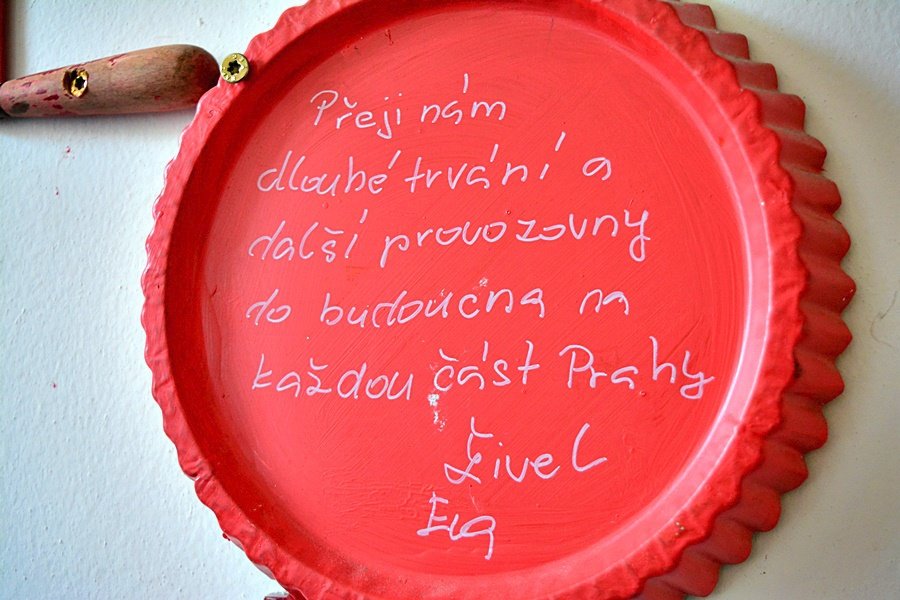 Přeji nám
dlouhé trvání a
další provozovny
do budoucna na
každou část Prahy
Živel
Eva